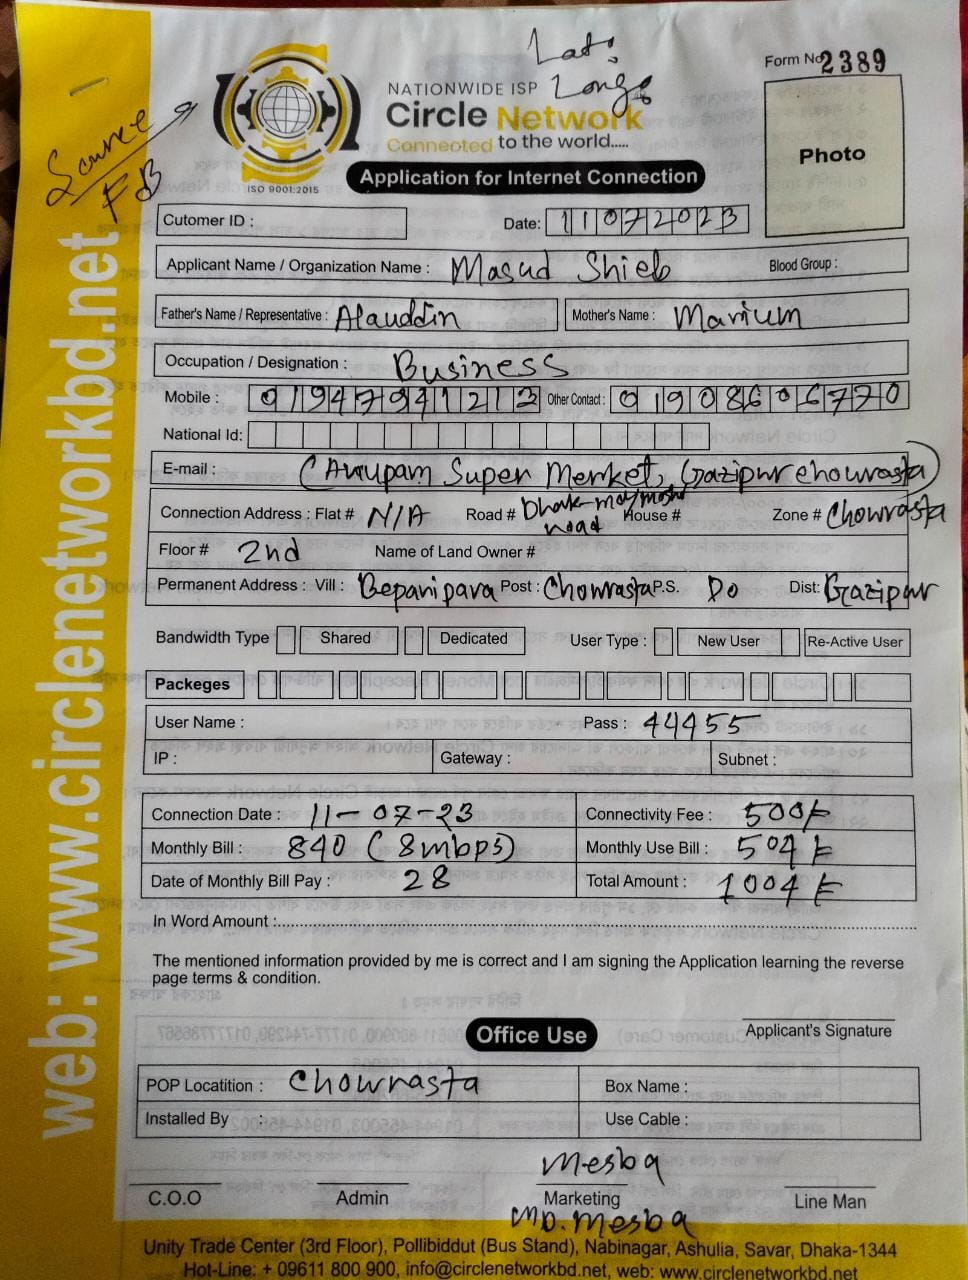 Lat:
Long:
Form No 2389
Source
FB
NATIONWIDE ISP
Circle Network
Connected to the world.....
ISO 9001:2015
Photo
Application for Internet Connection
Cutomer ID :
Date: 11072023
Applicant Name / Organization Name : Masud Shieb Blood Group :
Father's Name / Representative : Alauddin Mother's Name : Marium
Occupation / Designation : Business
Mobile : 01947941212 Other Contact : 01908606770
National Id:
E-mail : (Anupam Super Merket, Gazipur chowrasta)
Connection Address : Flat # N/A Road # road House # Zone # Chowrasta
Floor # 2nd Name of Land Owner #
Permanent Address : Vill : Beparipara Post : Chowrasta P.S. Do Dist: Gazipur
Bandwidth Type Shared Dedicated User Type : New User Re-Active User
Packeges
User Name : Pass : 44455
IP : Gateway : Subnet :
Connection Date : 11-07-23 Connectivity Fee : 500/-
Monthly Bill : 840 (8mbps) Monthly Use Bill : 504/-
Date of Monthly Bill Pay : 28 Total Amount : 1004/-
In Word Amount :
The mentioned information provided by me is correct and I am signing the Application learning the reverse
page terms & condition.
Applicant's Signature
Office Use
POP Locatition : Chowrasta Box Name :
Installed By : Use Cable :
Mesba
C.O.O Admin Marketing Line Man
MD. Mesba
Unity Trade Center (3rd Floor), Pollibiddut (Bus Stand), Nabinagar, Ashulia, Savar, Dhaka-1344
Hot-Line: + 09611 800 900, info@circlenetworkbd.net, web: www.circlenetworkbd.net
web: www.circlenetworkbd.net